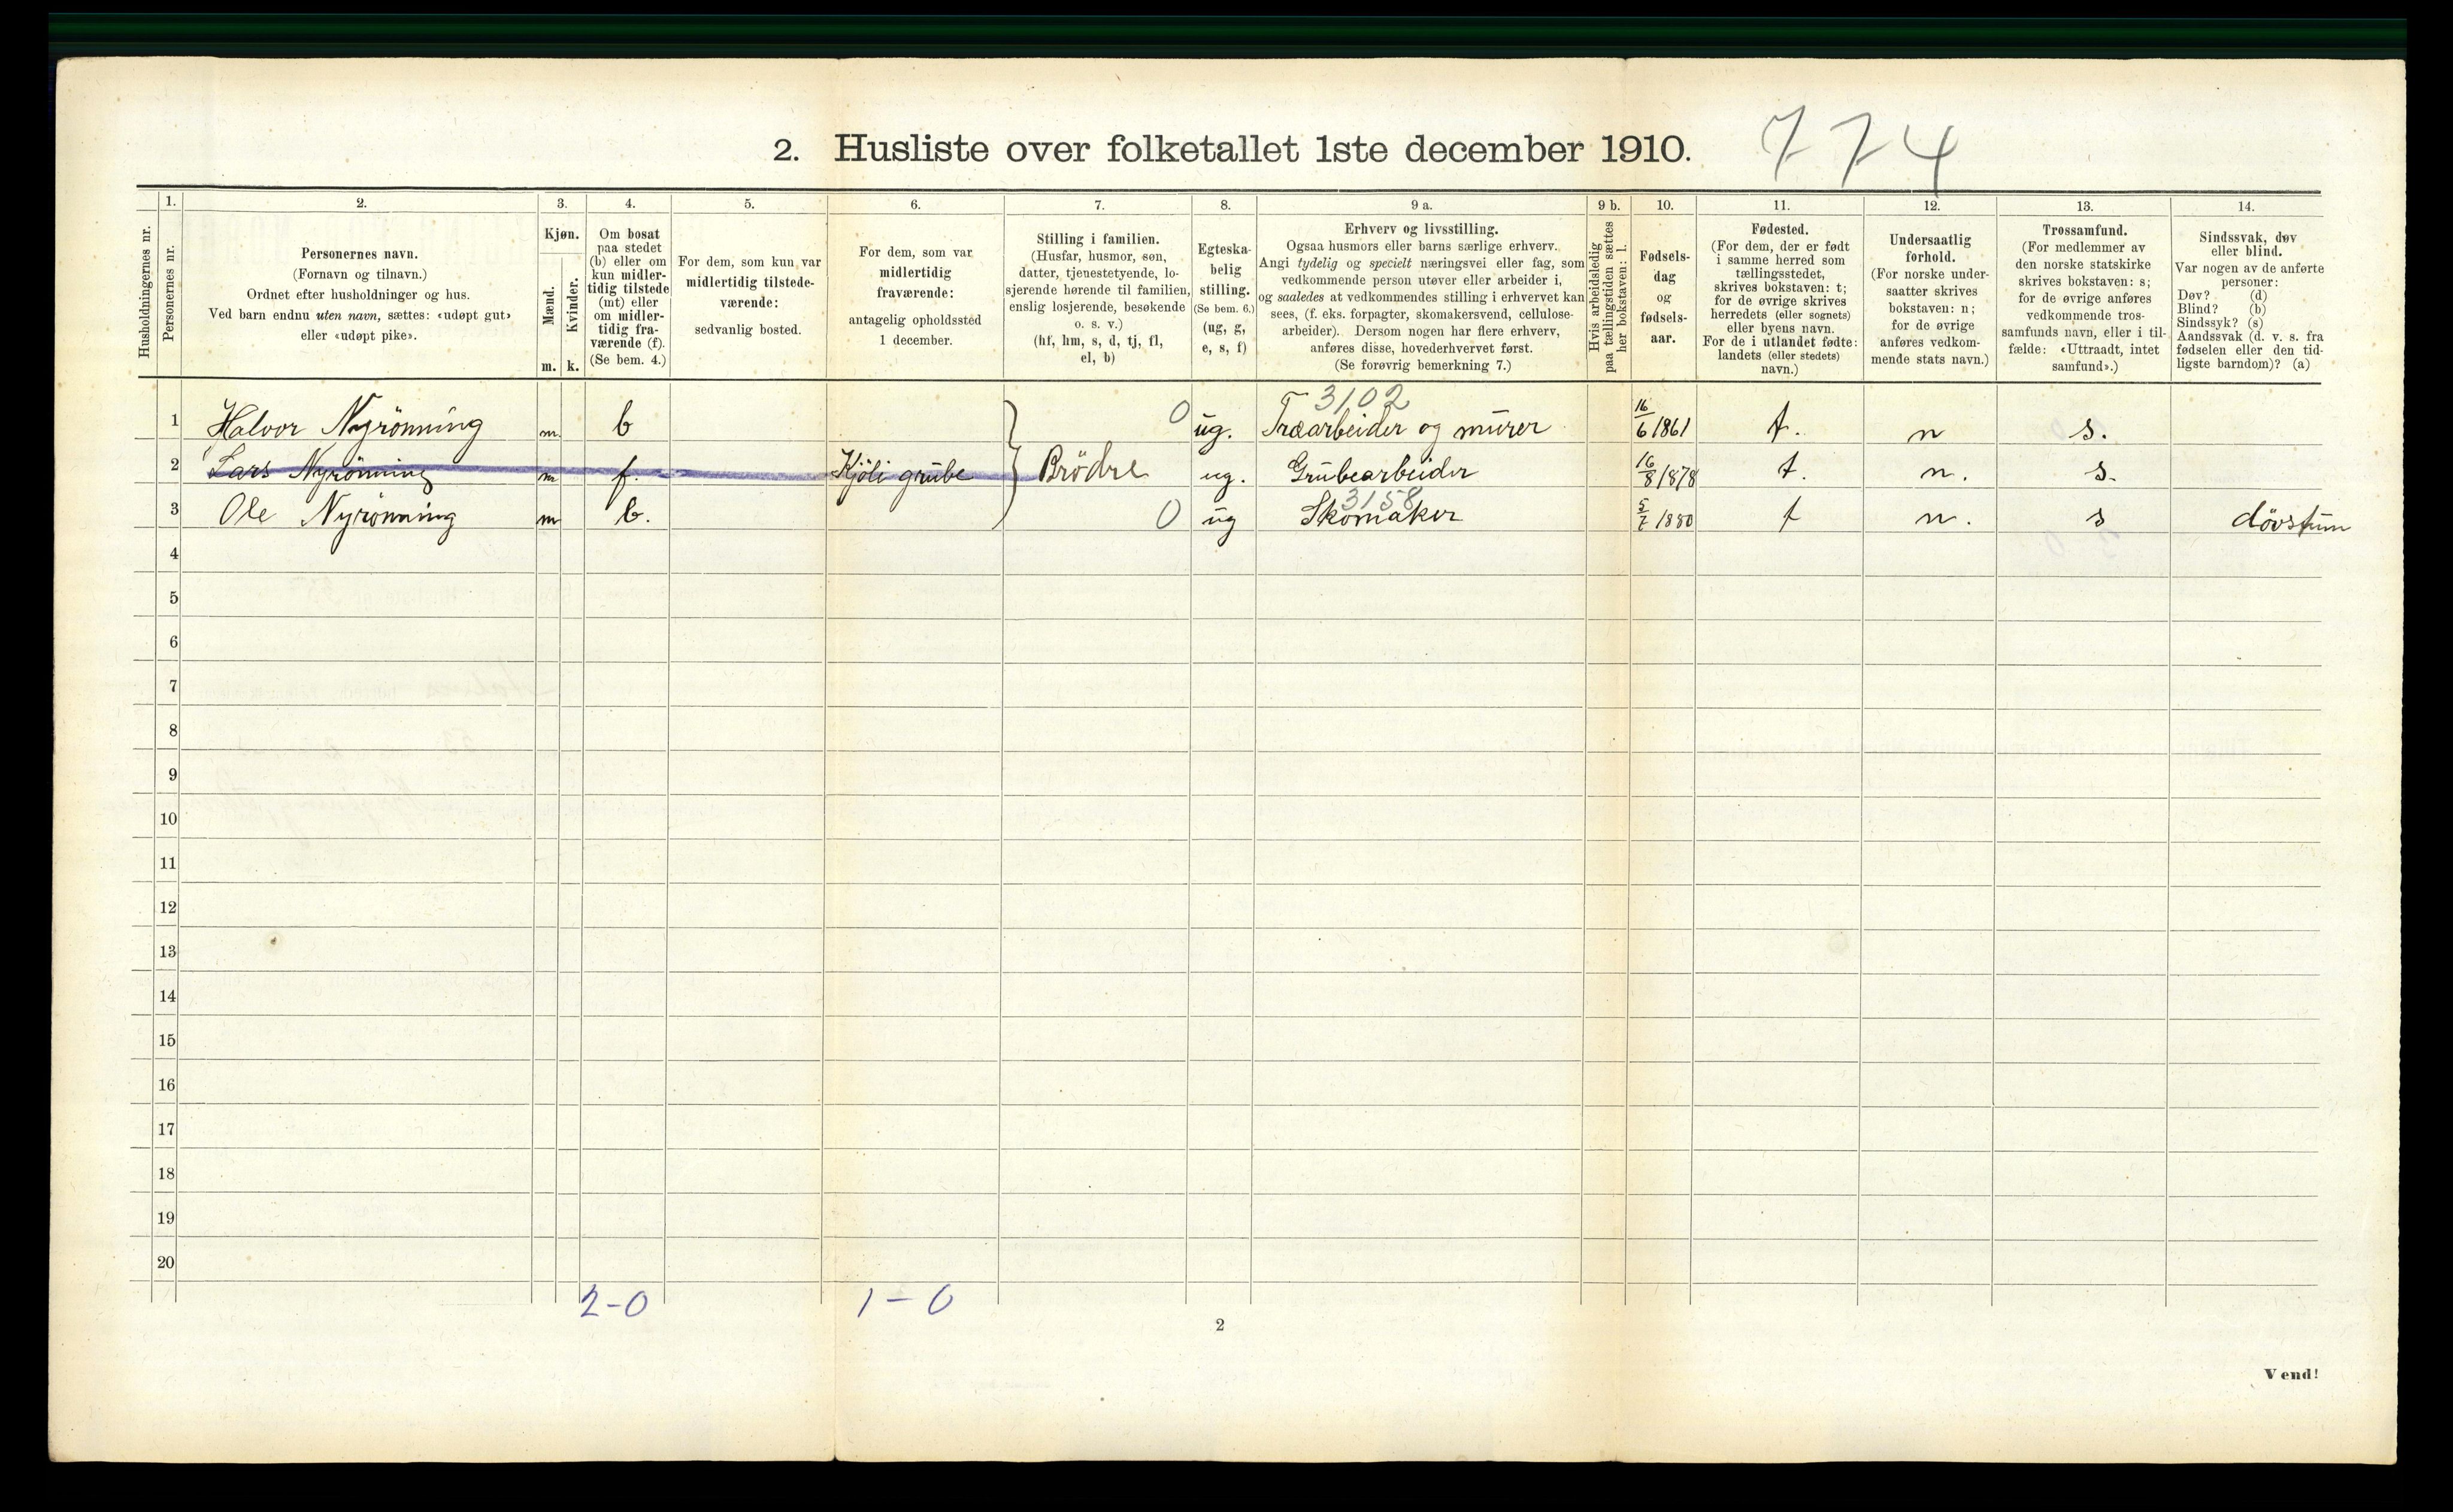 2. Husliste over folketallet 1ste december 1910. 774
Husholdningernes nr.
1. Personernes nr.
2. Personernes navn. (Fornavn og tilnavn.) Ordnet efter husholdninger og hus. Ved barn endnu uten navn, sættes: «udøpt gut» eller «udøpt pike».
3. Kjøn. Mænd. m. Kvinder. k.
4. Om bosat paa stedet (b) eller om kun midlertidig tilstede (mt) eller om midlertidig fraværende (f). (Se bem. 4.)
5. For dem, som kun var midlertidig tilstedeværende: sedvanlig bosted.
6. For dem, som var midlertidig fraværende: antagelig opholdssted 1 december.
7. Stilling i familien. (Husfar, husmor, søn, datter, tjenestetyende, losjerende hørende til familien, enslig losjerende, besøkende o. s. v.) (hf, hm, s, d, tj, fl, el, b)
8. Egteskabelig stilling. (Se bem. 6.) (ug, g, e, s, f)
9 a. Erhverv og livsstilling. Ogsaa husmors eller barns særlige erhverv. Angi tydelig og specielt næringsvei eller fag, som vedkommende person utøver eller arbeider i, og saaledes at vedkommendes stilling i erhvervet kan sees, (f. eks. forpagter, skomakersvend, cellulosearbeider). Dersom nogen har flere erhverv, anføres disse, hovederhvervet først. (Se forøvrig bemerkning 7.)
9 b. Hvis arbeidsledig paa tællingstiden sættes her bokstaven: l.
10. Fødselsdag og fødselsaar.
11. Fødested. (For dem, der er født i samme herred som tællingsstedet, skrives bokstaven: t; for de øvrige skrives herredets (eller sognets) eller byens navn. For de i utlandet fødte: landets (eller stedets) navn.)
12. Undersaatlig forhold. (For norske undersaatter skrives bokstaven: n; for de øvrige anføres vedkommende stats navn.)
13. Trossamfund. (For medlemmer av den norske statskirke skrives bokstaven: s; for de øvrige anføres vedkommende trossamfunds navn, eller i tilfælde: «Uttraadt, intet samfund».)
14. Sindssvak, døv eller blind. Var nogen av de anførte personer: Døv? (d) Blind? (b) Sindssyk? (s) Aandssvak (d. v. s. fra fødselen eller den tidligste barndom)? (a)
3102
1 Halvor Nyrönning m b 0 ug. Træarbeider og murer 16/6 1861 t. n s.
2 Lars Nyrönning m f. Kjöli grube Brödre ug. Grubearbeider 16/8 1878 t. n. s.
3158
3 Ole Nyrönning m b. 0 ug Skomaker 5/7 1880 t n. s dövstum
4
5
6
7
8
9
10
11
12
13
14
15
16
17
18
19
20
2-0 1-0
2
Vend!